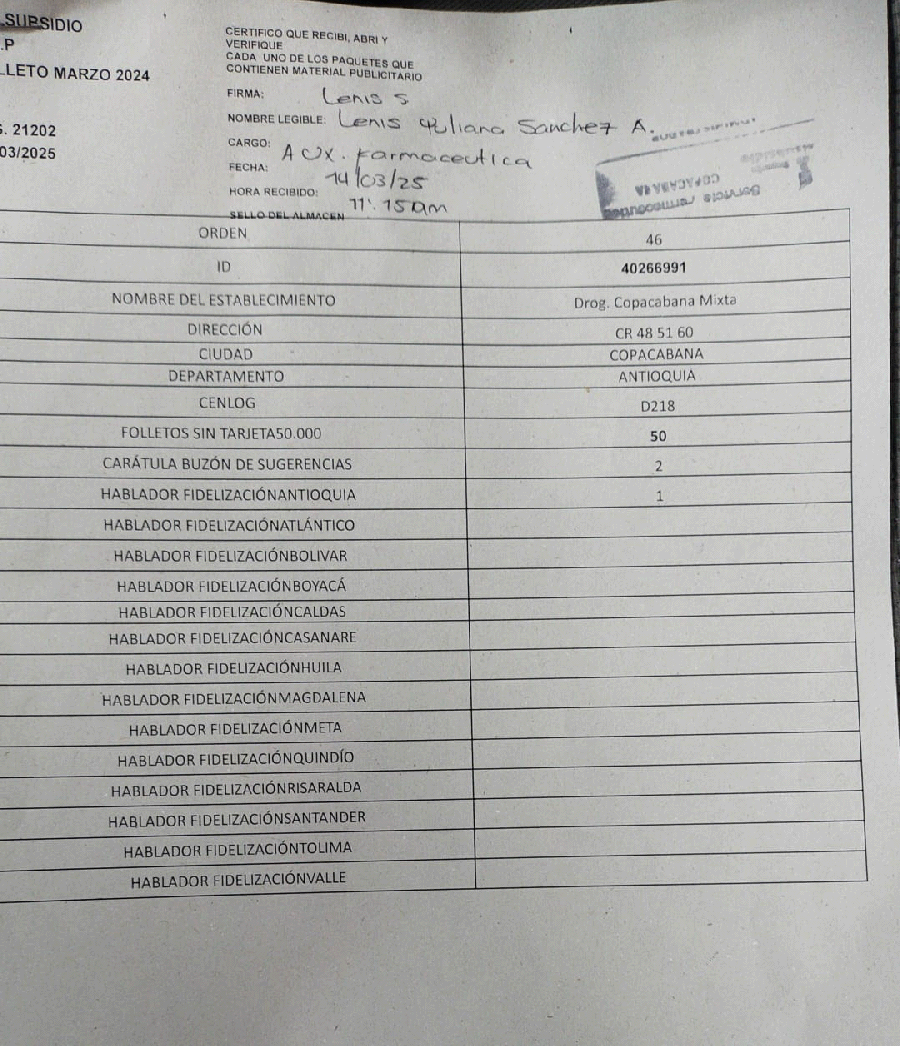 SUBSIDIO
.P
LLETO MARZO 2024
S. 21202
03/2025
CERTIFICO QUE RECIBI, ABRI Y
VERIFIQUE
CADA UNO DE LOS PAQUETES QUE
CONTIENEN MATERIAL PUBLICITARIO
FIRMA: Lenis S
NOMBRE LEGIBLE: Lenis Yuliana Sanchez A.
CARGO: Aux. Farmaceutica
FECHA: 14/03/25
HORA RECIBIDO: 11:15 am
SELLO DEL ALMACEN
COPACABANA
Servicio Farmaceutico
ORDEN 46
ID 40266991
NOMBRE DEL ESTABLECIMIENTO Drog. Copacabana Mixta
DIRECCIÓN CR 48 51 60
CIUDAD COPACABANA
DEPARTAMENTO ANTIOQUIA
CENLOG D218
FOLLETOS SIN TARJETA50.000 50
CARÁTULA BUZÓN DE SUGERENCIAS 2
HABLADOR FIDELIZACIÓNANTIOQUIA 1
HABLADOR FIDELIZACIÓNATLÁNTICO
HABLADOR FIDELIZACIÓNBOLIVAR
HABLADOR FIDELIZACIÓNBOYACÁ
HABLADOR FIDELIZACIÓNCALDAS
HABLADOR FIDELIZACIÓNCASANARE
HABLADOR FIDELIZACIÓNHUILA
HABLADOR FIDELIZACIÓNMAGDALENA
HABLADOR FIDELIZACIÓNMETA
HABLADOR FIDELIZACIÓNQUINDÍO
HABLADOR FIDELIZACIÓNRISARALDA
HABLADOR FIDELIZACIÓNSANTANDER
HABLADOR FIDELIZACIÓNTOLIMA
HABLADOR FIDELIZACIÓNVALLE